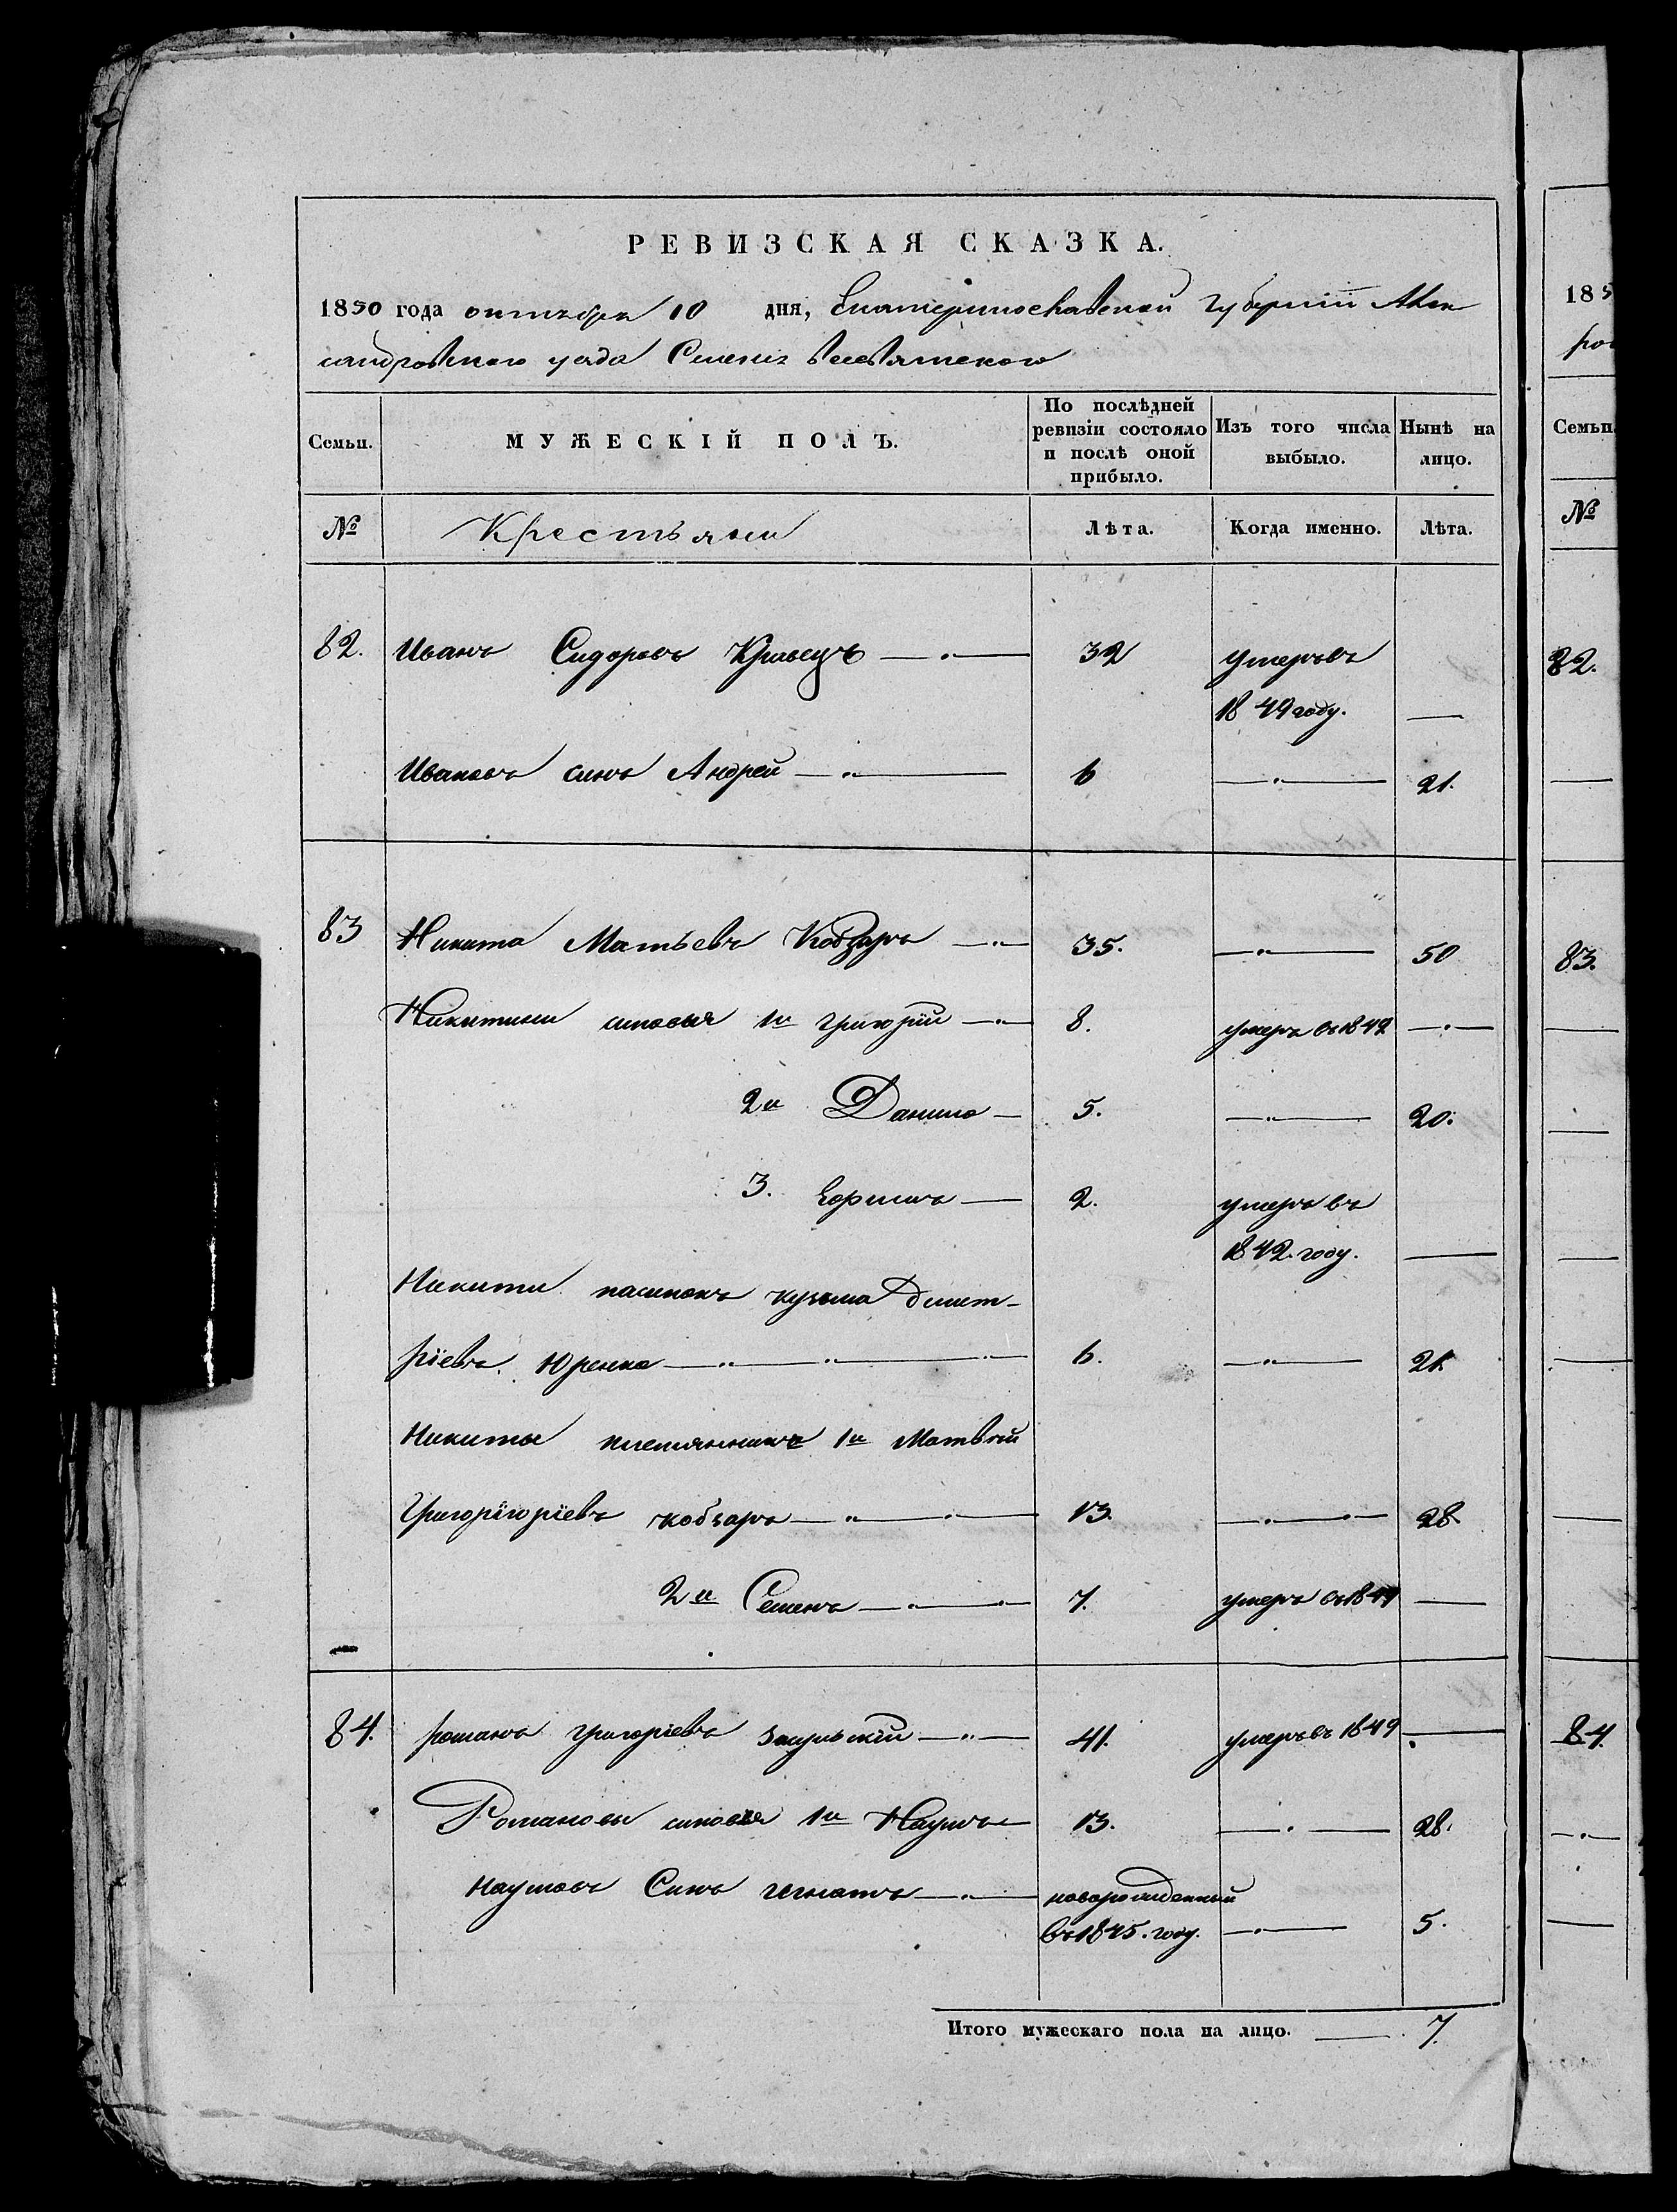 РЕВИЗСКАЯ СКАЗКА.
1850 года октября 10 дня, Екатеринославской Губернiи Алек
сандровского уезда Селенiя всесвятского
Семьи.
МУЖЕСКІЙ ПОЛЪ.
По послѣдней ревизіи состояло и послѣ оной прибыло.
Изъ того числа выбыло.
Нынѣ на лицо.
№ Крестьяни Лѣта. Когда именно. Лѣта.
82. Иванъ Сидоровъ Кравецъ 32 умеръ въ
1849 году. —
Ивановъ синъ Андрей 6 — 21.
83 Никита Матьевъ Кобзаръ 35. — 50
Никитини синовья 1й григорїй 8. умеръ въ 1842 —
2й Данило 5. — 20.
3. Ефимъ 2. умеръ въ
1842. году. —
Никити пасинокъ кузьма дмит-
рїевъ Юренко 6. — 21.
Никиты племянники 1й Матвѣй
Григорїгорїевъ кобзаръ 13. — 28.
2й Семенъ 7. умеръ въ 1849 —
84. романъ григорїевъ 41. умеръ въ 1849 —
Романовы синовья 1й Наумъ 13. — 28.
Наумовъ Синъ игнатъ новорожденный
въ 1845. году. — 5.
Итого мужескаго пола на лицо. — 7.
185
Семьи.
№
82.
83.
84.